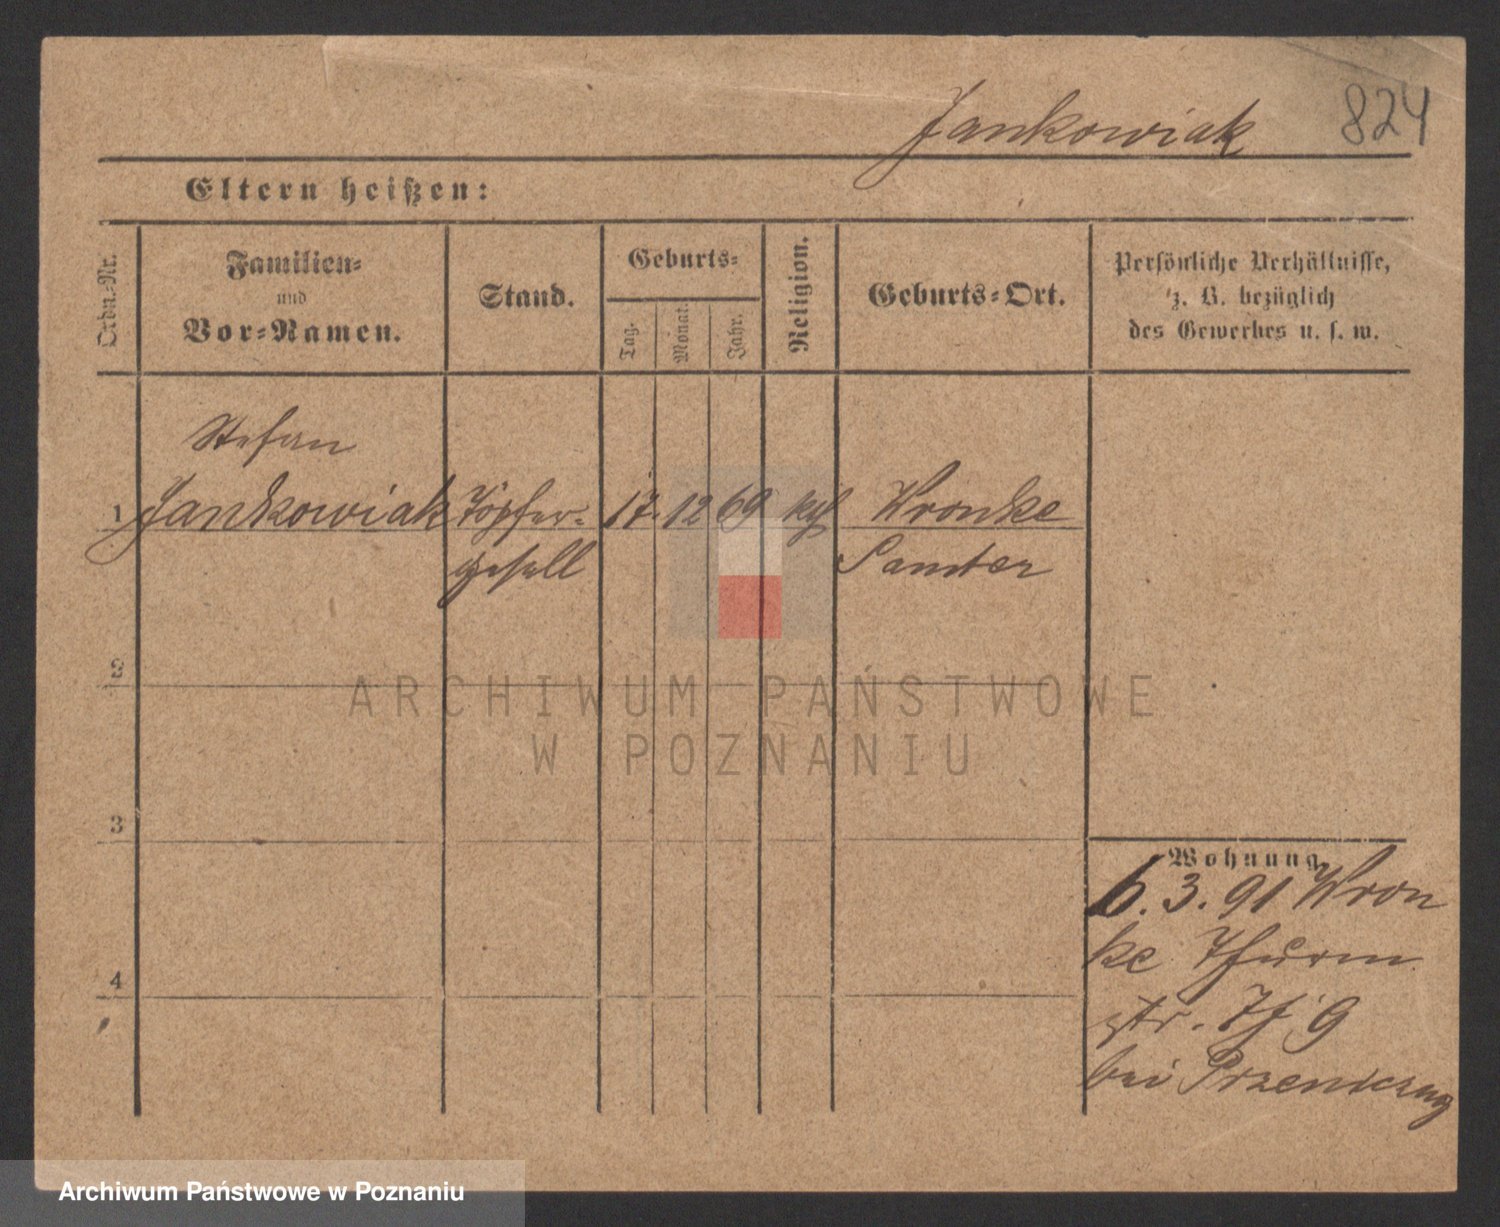 Jankowiak 824
Eltern heißen:
Ordn.-Nr.
Familien-
und
Vor-Namen.
Stand.
Geburts-
Tag.
Monat.
Jahr.
Religion.
Geburts-Ort.
Persönliche Verhältnisse,
z. B. bezüglich
des Gewerbes u. s. w.
Stefan
1 Jankowiak Töpfer- 17. 12 69 kth Wronke
gesell Samter
2
ARCHIWUM PAŃSTWOWE
W POZNANIU
3
Wohnung
6. 3. 91 Wron
ke Thurm
str. 9
bei
4
Archiwum Państwowe w Poznaniu